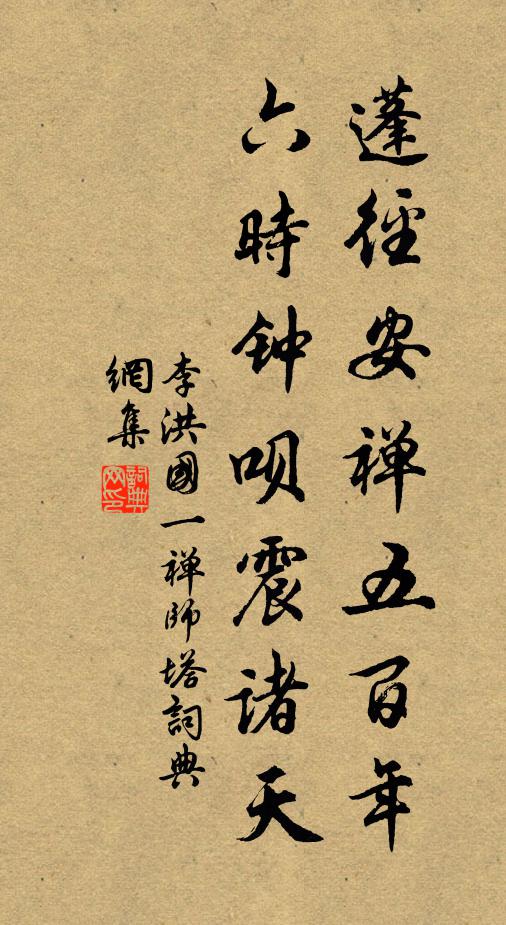 蓬徑安禅五百年
六時钟呗震诸天
李洪國一禅師塔詞典
網集
詞典
网印